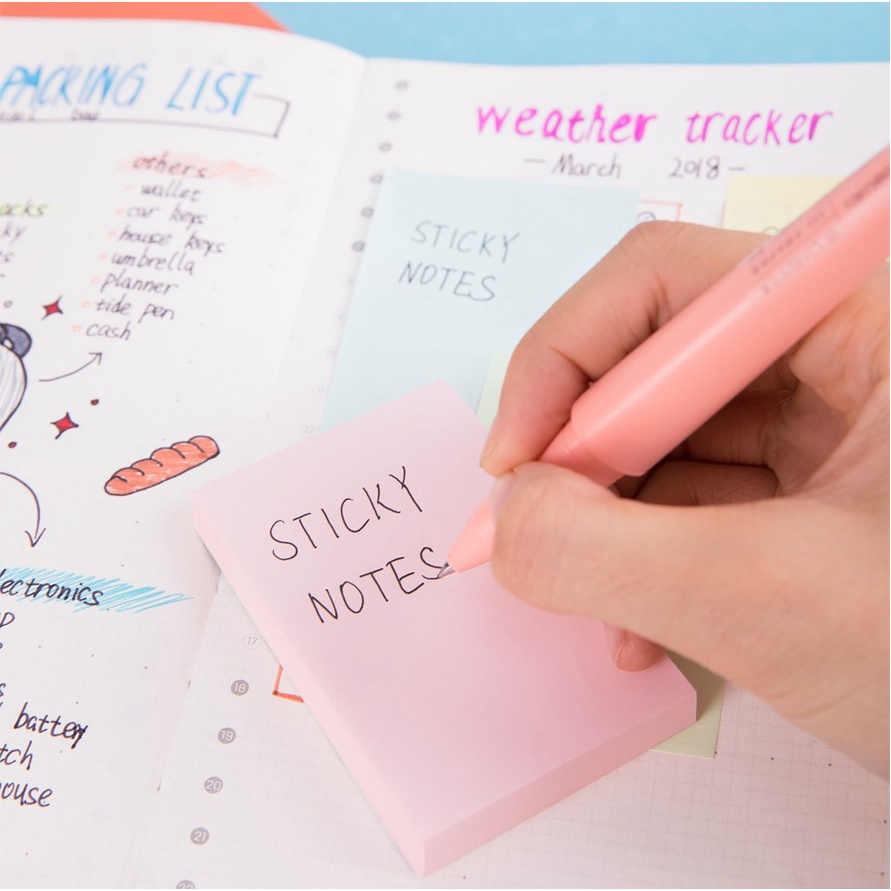 PACKING LIST
others
wallet
car keys
house keys
umbrella
planner
tide pen
cash
electronics
battery
weather tracker
- March 2018 -
STICKY
NOTES
STICKY
NOTES
17
18
19
20
21